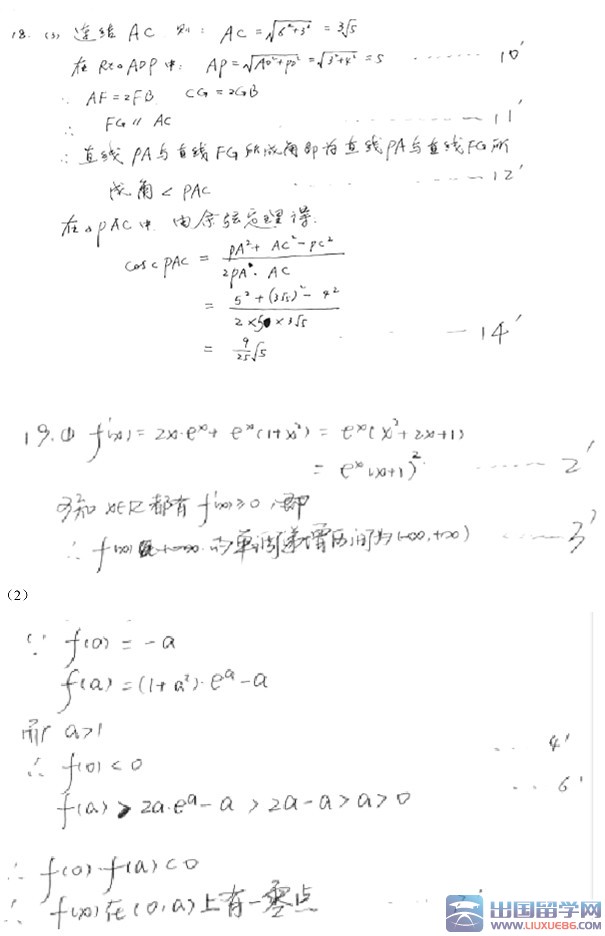 18. (3) 连结 AC 则: AC = √(6²+3²) = 3√5
在 Rt△ADP 中: AP = √(AD²+PD²) = √(3²+4²) = 5 ······ 10′
∵ AF = 2FB CG = 2GB
∴ FG ∥ AC ······ 11′
∴ 直线 PA 与直线 FG 所成角即为直线 PA 与直线 FG 所
成角∠PAC ······ 12′
在△PAC 中 由余弦定理得:
cos∠PAC = (PA² + AC² - PC²) / (2PA · AC)
= (5² + (3√5)² - 4²) / (2×5×3√5)
= 9/25 √5 ······ 14′
19. ① f′(x) = 2x·eˣ + eˣ(1+x²) = eˣ(x²+2x+1)
= eˣ(x+1)² ······ 2′
x∈R 都有 f′(x) ≥ 0, 即
∴ f(x) 的单调递增区间为 (-∞, +∞) ······ 3′
(2)
∵ f(0) = -a
f(a) = (1+a²)·eᵃ - a
而 a>1
∴ f(0) < 0 ··· 4′
f(a) > 2a·eᵃ - a > 2a - a > a > 0 ··· 6′
∴ f(0)·f(a) < 0
∴ f(x) 在 (0, a) 上有一零点
出国留学网
WWW.LIUXUE86.COM